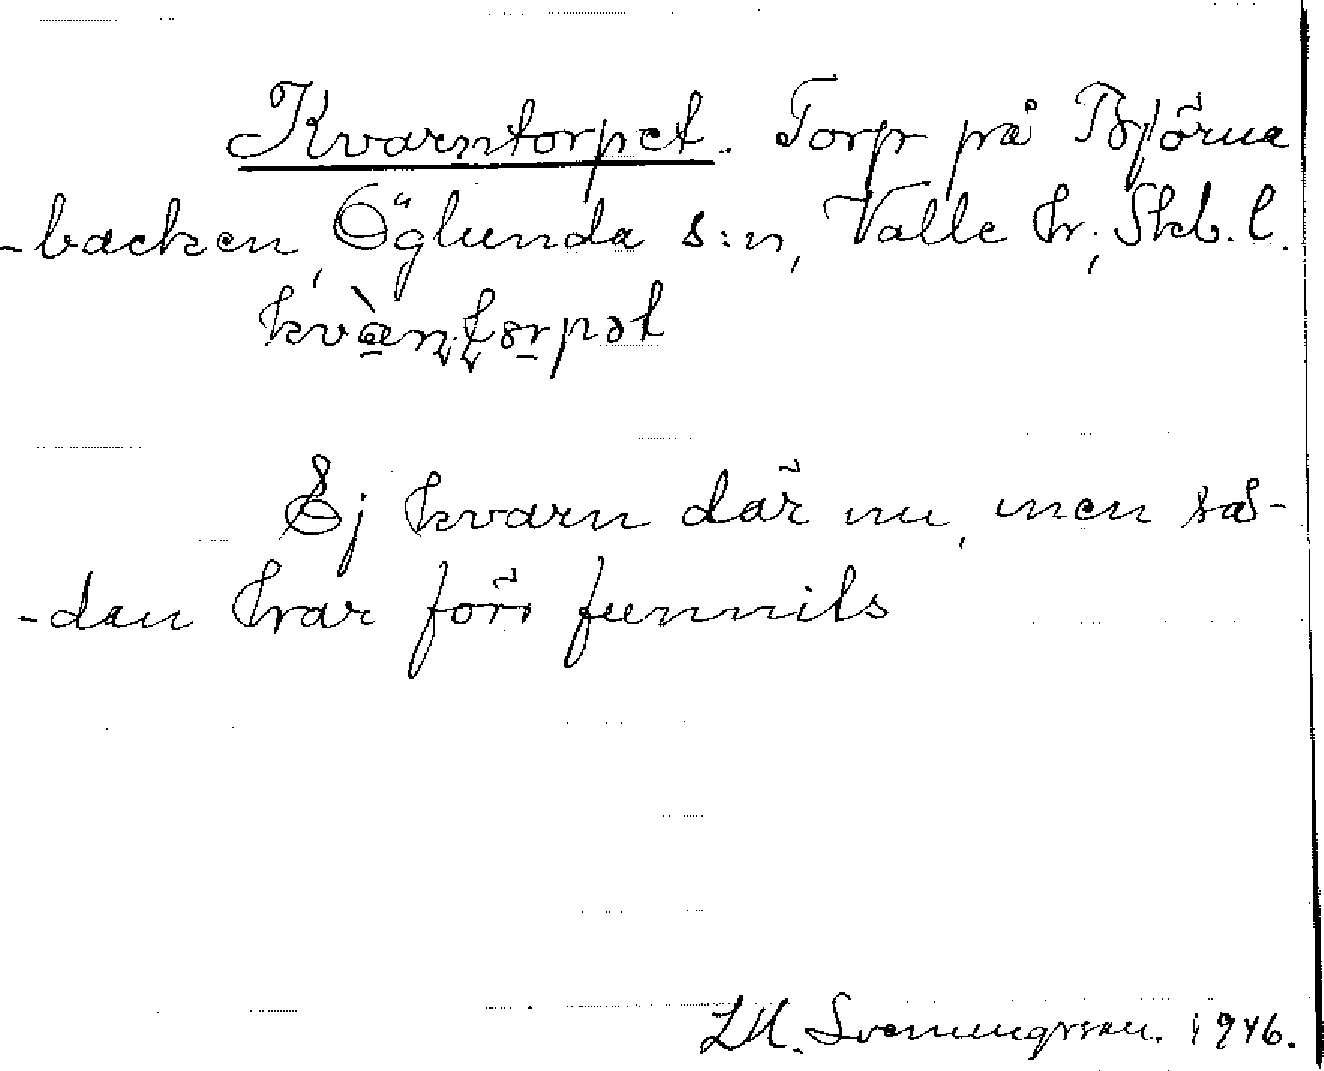 Kvarntorpet. Torp på Björna
-backen, Öglunda s:n, Valle hr, Skb. l.
Ej kvarn där nu, men så-
-dan har förr funnits
Svenungsson. 1946.